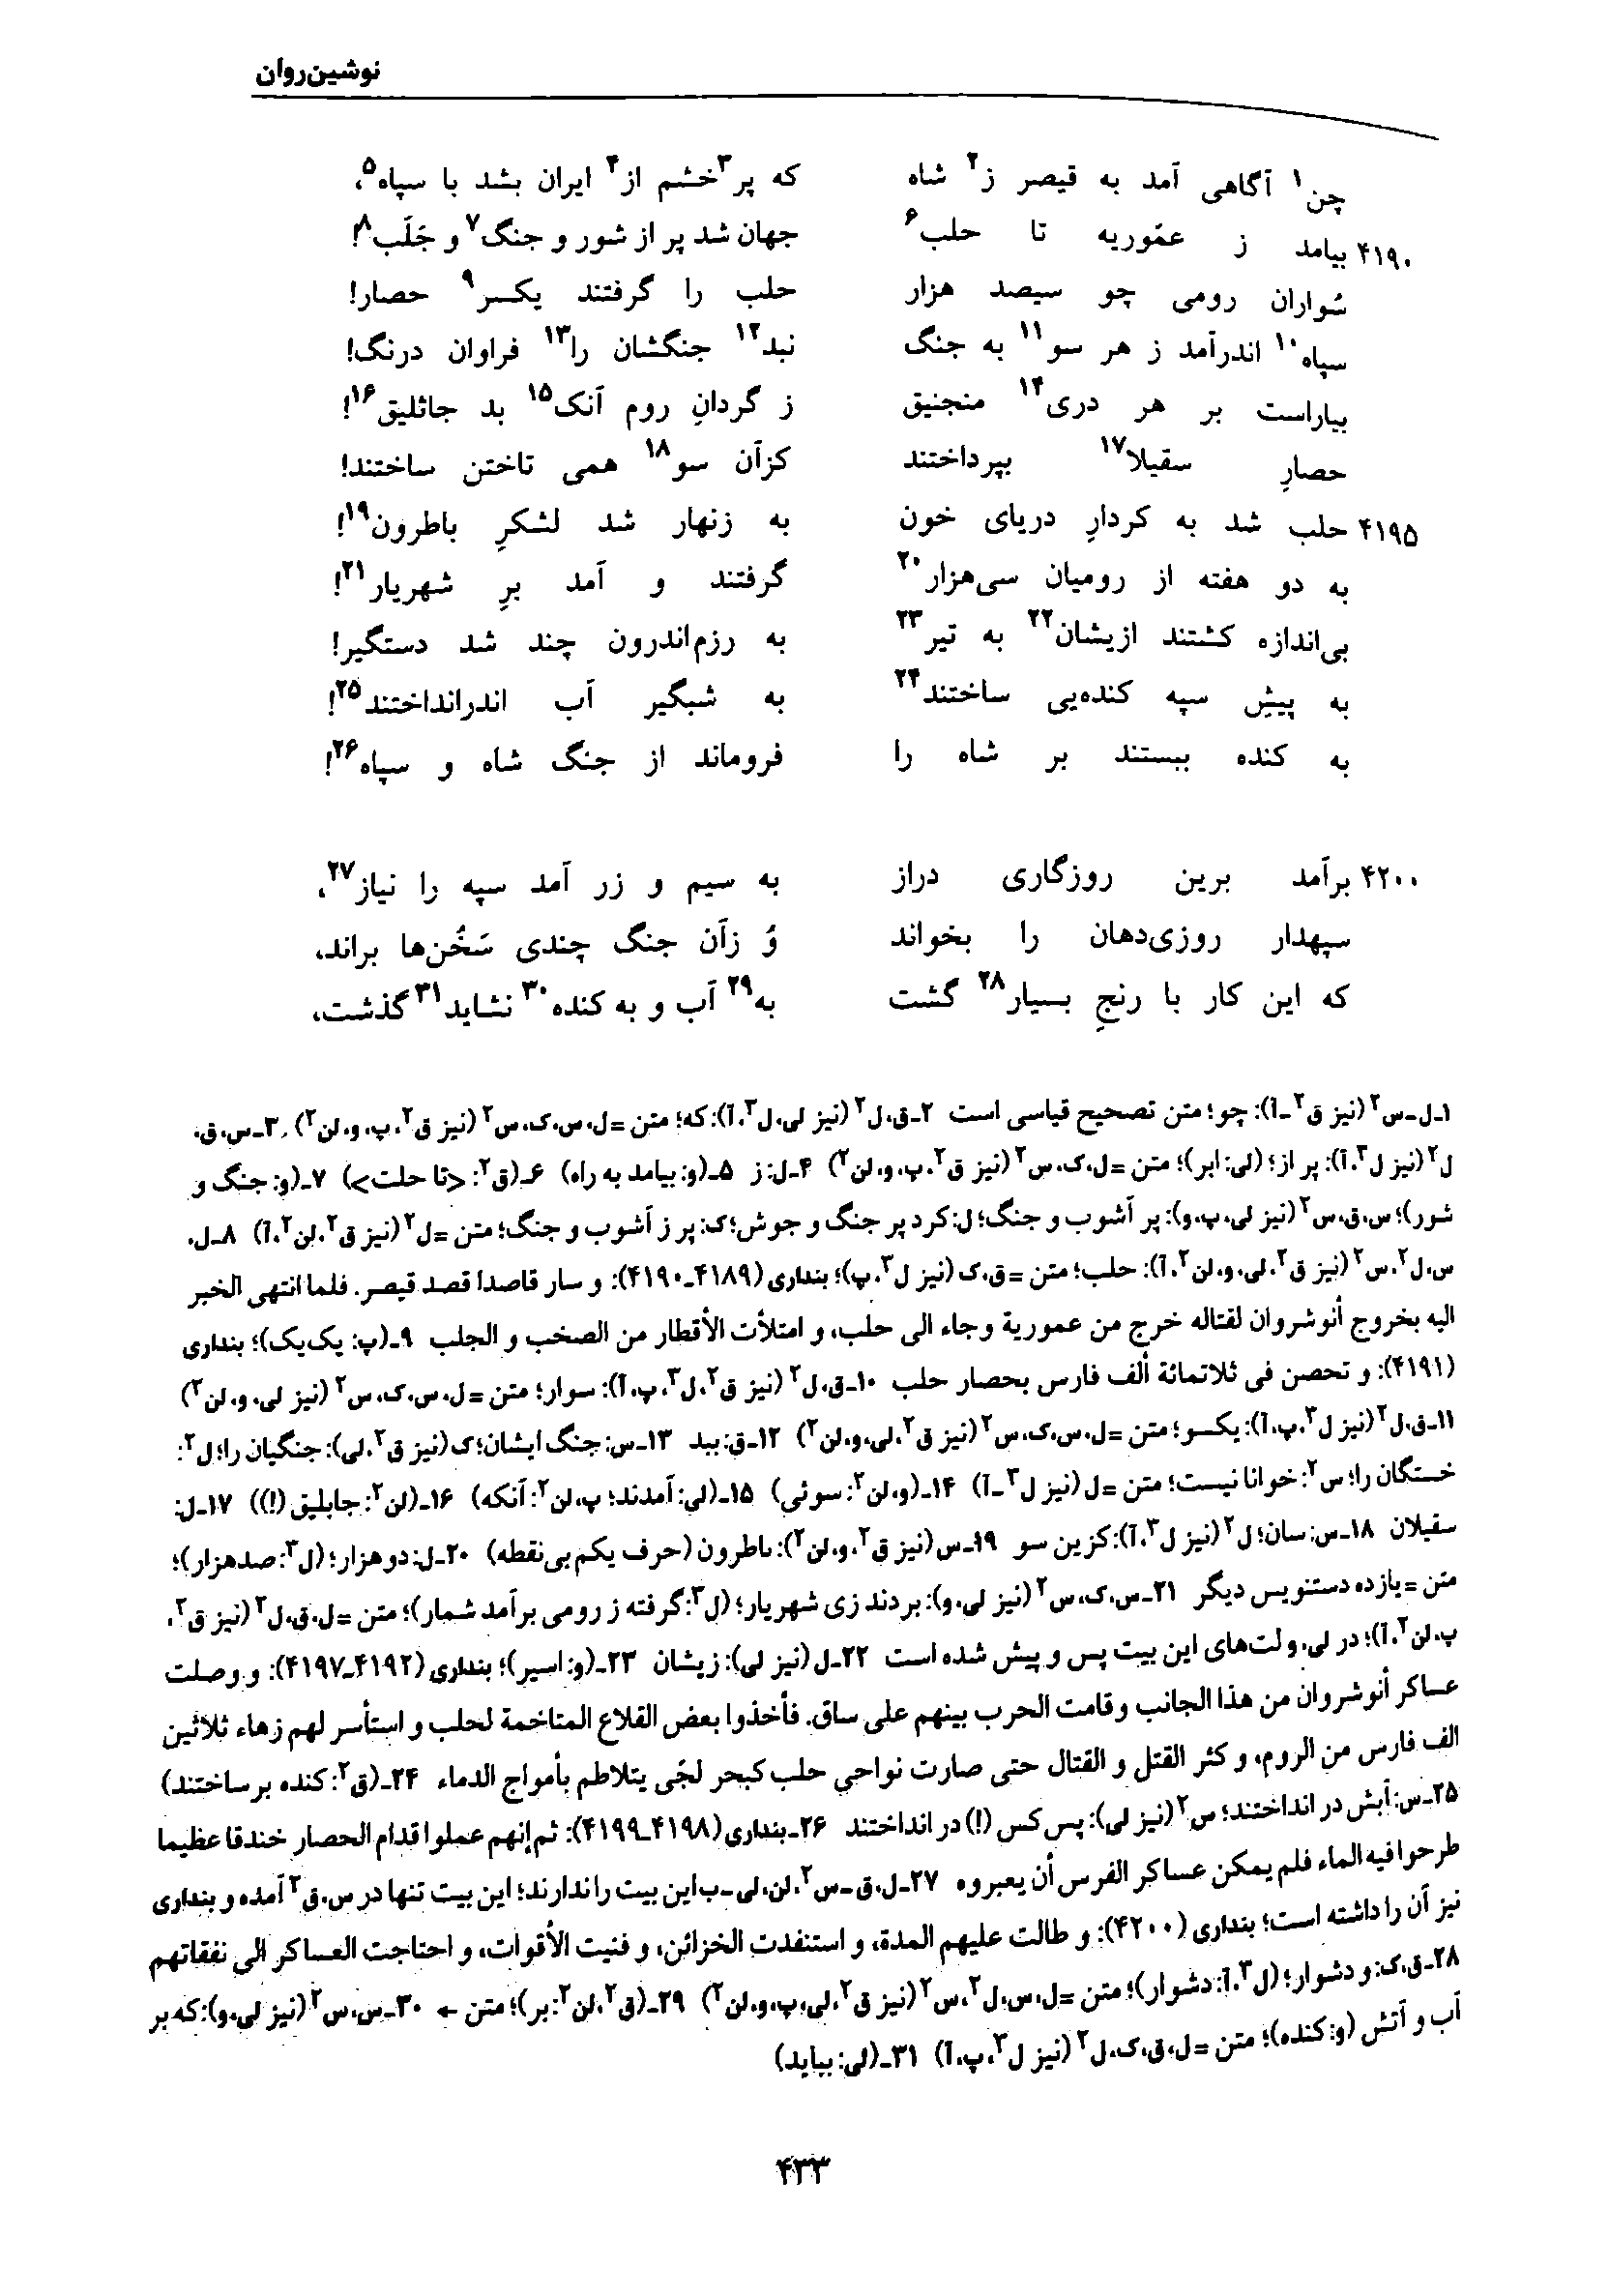 نوشین‌روان
چن۱ آگاهی آمد به قیصر ز۲ شاه که پر۳خشم از۴ ایران بشد با سپاه۵،
۴۱۹۰ بیامد ز عمّوریه تا حلب۶ جهان شد پر از شور و جنگ۷ و جَلَب۸!
سُواران رومی چو سیصد هزار حلب را گرفتند یکسر۹ حصار!
سپاه۱۰ اندرآمد ز هر سو۱۱ به جنگ نبد۱۲ جنگشان را۱۳ فراوان درنگ!
بیاراست بر هر دری۱۴ منجنیق ز گردانِ روم آنک۱۵ بد جاثلیق۱۶!
حصارِ سقیلا۱۷ بپرداختند کزآن سو۱۸ همی تاختن ساختند!
۴۱۹۵ حلب شد به کردارِ دریای خون به زنهار شد لشکرِ باطرون۱۹!
به دو هفته از رومیان سی‌هزار۲۰ گرفتند و آمد برِ شهریار۲۱!
بی‌اندازه کشتند ازیشان۲۲ به تیر۲۳ به رزم‌اندرون چند شد دستگیر!
به پیشِ سپه کنده‌یی ساختند۲۴ به شبگیر آب اندرانداختند۲۵!
به کنده ببستند بر شاه را فروماند از جنگ شاه و سپاه۲۶!
۴۲۰۰ برآمد برین روزگاری دراز به سیم و زر آمد سپه را نیاز۲۷،
سپهدار روزی‌دهان را بخواند وُ زآن جنگ چندی سَخُن‌ها براند،
که این کار با رنجِ بسیار۲۸ گشت به۲۹ آب و به کنده۳۰ نشاید۳۱ گذشت،
۱ـ ل ـ س۲ (نیز ق۲ ـ آ): چو؛ متن تصحیح قیاسی است ۲ـ ق، ل۲ (نیز لی، ل۳، آ): که؛ متن = ل، س، ک، س۲ (نیز ق۲، پ، و، لن۲) ۳ـ س، ق،
ل۲ (نیز ل۳، آ): پر از؛ (لی: ابر)؛ متن = ل، ک، س۲ (نیز ق۲، پ، و، لن۲) ۴ـ ل: ز ۵ـ (و: بیامد به راه) ۶ـ (ق۲: <تا حلت>) ۷ـ (و: جنگ و
شور)؛ س، ق، س۲ (نیز لی، پ، و): پر آشوب و جنگ؛ ل: کرد پر جنگ و جوش؛ ک: پر ز آشوب و جنگ؛ متن = ل۲ (نیز ق۲، لن۲، آ) ۸ـ ل،
س، ل۲، س۲ (نیز ق۲، لی، و، لن۲، آ): حلب؛ متن = ق، ک (نیز ل۳، پ)؛ بنداری (۴۱۸۹ـ۴۱۹۰): و سار قاصدا قصد قیصر. فلما انتهی الخبر
الیه بخروج أنوشروان لقتاله خرج من عموریة وجاء الی حلب، و امتلأت الأقطار من الصخب و الجلب ۹ـ (پ: یک‌یک)؛ بنداری
(۴۱۹۱): و تحصن فی ثلاتمائة ألف فارس بحصار حلب ۱۰ـ ق، ل۲ (نیز ق۲، ل۳، پ، آ): سوار؛ متن = ل، س، ک، س۲ (نیز لی، و، لن۲)
۱۱ـ ق، ل۲ (نیز ل۳، پ، آ): یکسو؛ متن = ل، س، ک، س۲ (نیز ق۲، لی، و، لن۲) ۱۲ـ ق: ببد ۱۳ـ س: جنگ ایشان؛ ک (نیز ق۲، لی): جنگیان را؛ ل۲:
خستگان را؛ س۲: خوانا نیست؛ متن = ل (نیز ل۳ ـ آ) ۱۴ـ (و، لن۲: سوئی) ۱۵ـ (لی: آمدند؛ پ، لن۲: آنکه) ۱۶ـ (لن۲: جابلیق (!)) ۱۷ـ ل:
سقیلان ۱۸ـ س: سان؛ ل۲ (نیز ل۳، آ): کزین سو ۱۹ـ س (نیز ق۲، و، لن۲): ٮاطرون (حرف یکم بی‌نقطه) ۲۰ـ ل: دو هزار؛ (ل۳: صدهزار)؛
متن = یازده دستنویس دیگر ۲۱ـ س، ک، س۲ (نیز لی، و): بردند زی شهریار؛ (ل۳: گرفته ز رومی برآمد شمار)؛ متن = ل، ق، ل۲ (نیز ق۲،
پ، لن۲، آ)؛ در لی، و لت‌های این بیت پس و پیش شده است ۲۲ـ ل (نیز لی): زیشان ۲۳ـ (و: اسیر)؛ بنداری (۴۱۹۲ـ۴۱۹۷): و وصلت
عساکر أنوشروان من هذا الجانب وقامت الحرب بینهم علی ساق. فأخذوا بعض القلاع المتاخمة لحلب و استأسر لهم زهاء ثلاثین
الف فارس من الروم، و کثر القتل و القتال حتی صارت نواحي حلب کبحر لجّی یتلاطم بأمواج الدماء ۲۴ـ (ق۲: کنده بر ساختند)
۲۵ـ س: آبش در انداختند؛ س۲ (نیز لی): پس کس (!) در انداختند ۲۶ـ بنداری (۴۱۹۸ـ۴۱۹۹): ثم إنهم عملوا قدام الحصار خندقا عظیما
طرحوا فیه الماء فلم یمکن عساکر الفرس أن یعبروه ۲۷ـ ل، ق ـ س۲، لن، لی ـ ب این بیت را ندارند؛ این بیت تنها در س، ق۲ آمده و بنداری
نیز آن را داشته است؛ بنداری (۴۲۰۰): و طالت علیهم المدة، و استنفدت الخزائن، و فنیت الأقوات، و احتاجت العساکر الی نفقاتهم
۲۸ـ ق، ک: و دشوار؛ (ل۳، آ: دشوار)؛ متن = ل، س، ل۲، س۲ (نیز ق۲، لی، پ، و، لن۲) ۲۹ـ (ق۲، لن۲: بر)؛ متن ← ۳۰ـ س، س۲ (نیز لی، و): که بر
آب و آتش (و: کنده)؛ متن = ل، ق، ک، ل۲ (نیز ل۳، پ، آ) ۳۱ـ (لی: بباید)
۴۳۳